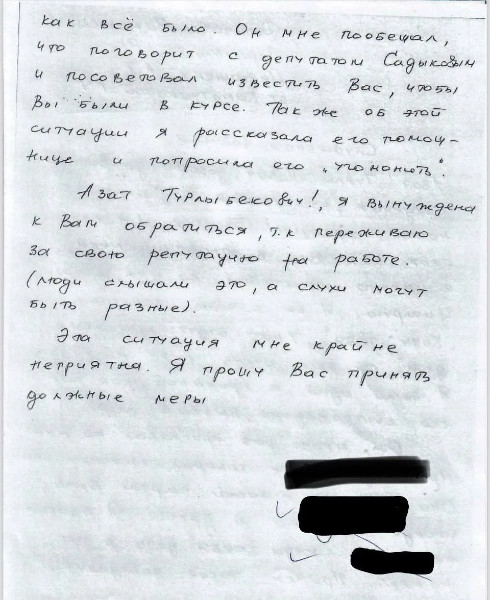 как всё было. Он мне пообещал,
что поговорит с депутатом Садыковым
и посоветовал известить Вас, чтобы
Вы были в курсе. Так же об этой
ситуации я рассказала его помощ-
нице и попросила его „угомонить".
Азат Турлыбекович!, я вынуждена
к Вам обратиться, т.к переживаю
за свою репутацию на работе.
(люди слышали это, а слухи могут
быть разные).
Эта ситуация мне крайне
неприятна. Я прошу Вас принять
должные меры